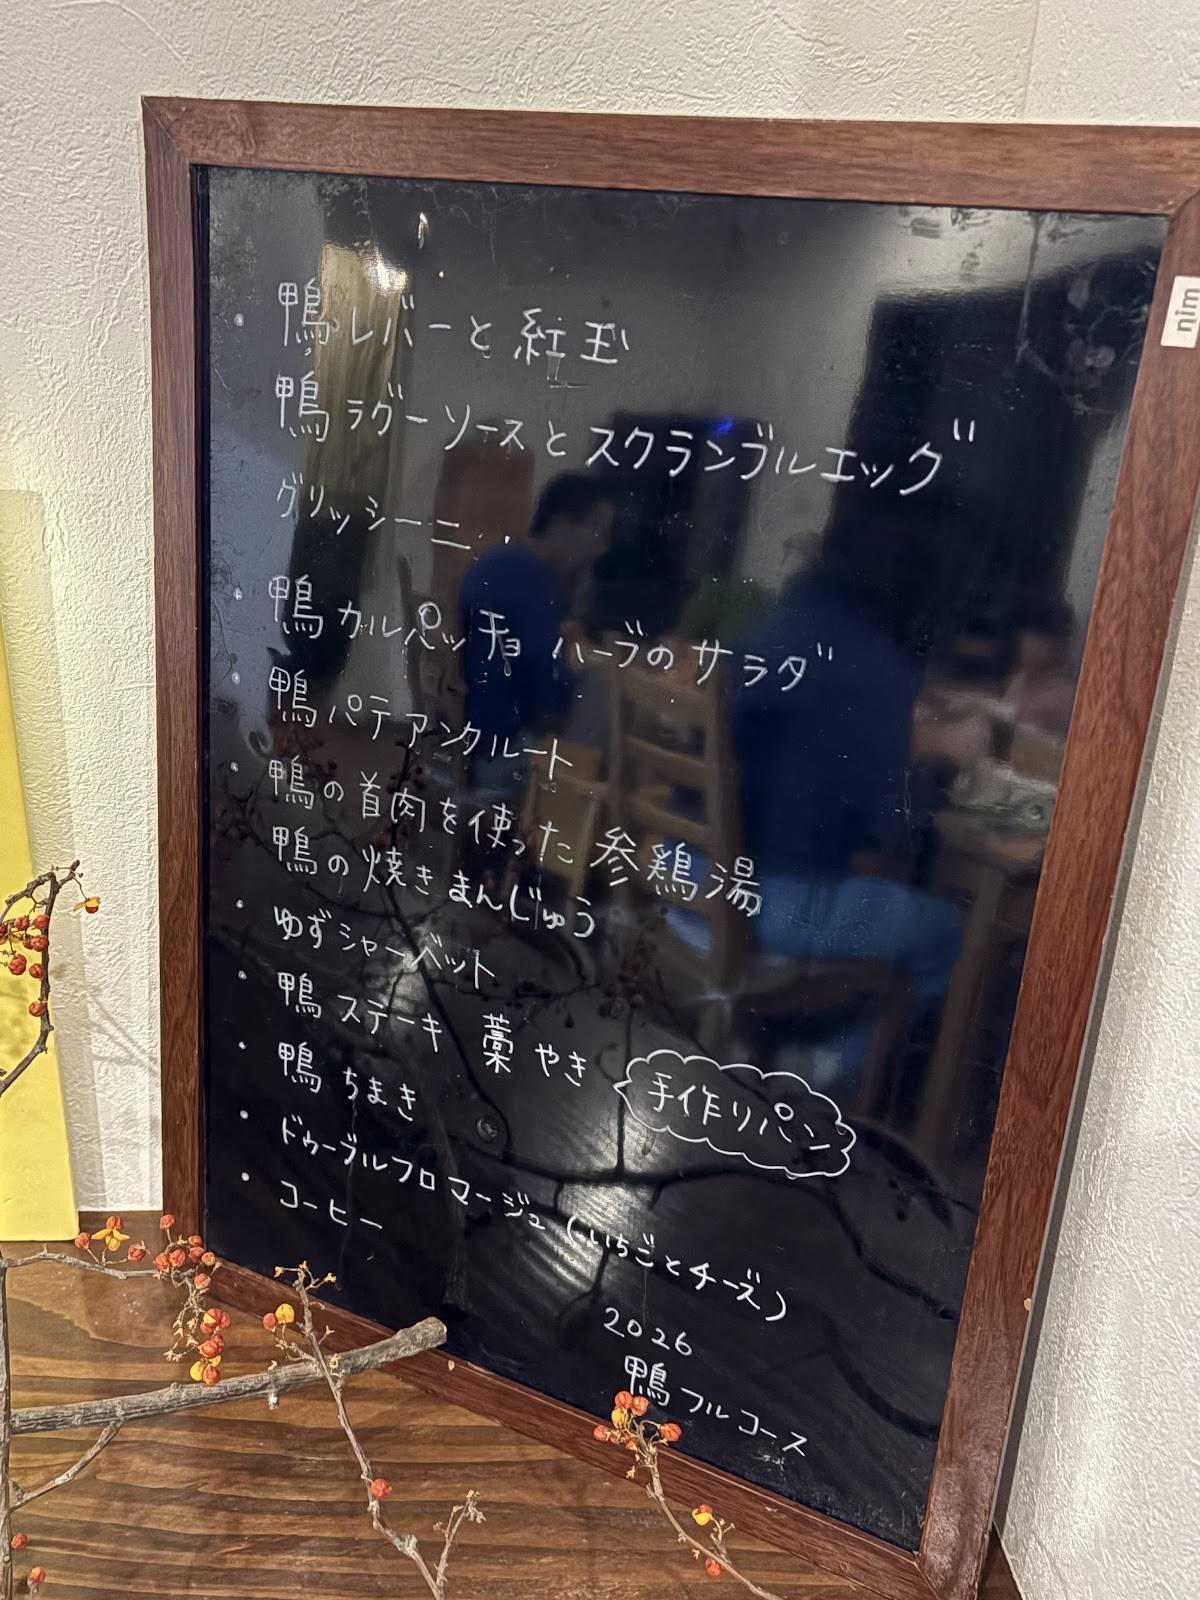 ・鴨レバーと紅玉
鴨ラグーソースとスクランブルエッグ
グリッシーニ
・鴨カルパッチョ ハーブのサラダ
・鴨パテアンクルート
・鴨の首肉を使った参鶏湯
鴨の焼きまんじゅう
・ゆずシャーベット
・鴨ステーキ 藁やき
手作りパン
・鴨ちまき
・ドゥーブルフロマージュ(いちごとチーズ)
・コーヒー
2026
鴨フルコース
nim